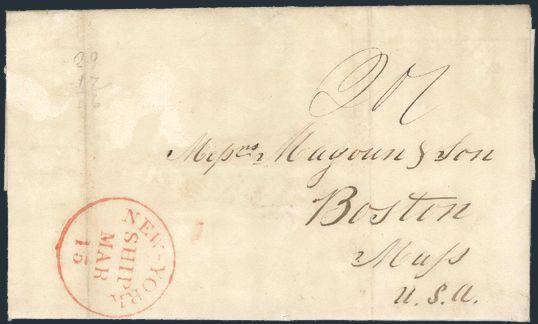 Messrs. Magoun & Son
Boston
Mass
U.S.A.
NEW-YORK
SHIP
MAR
15